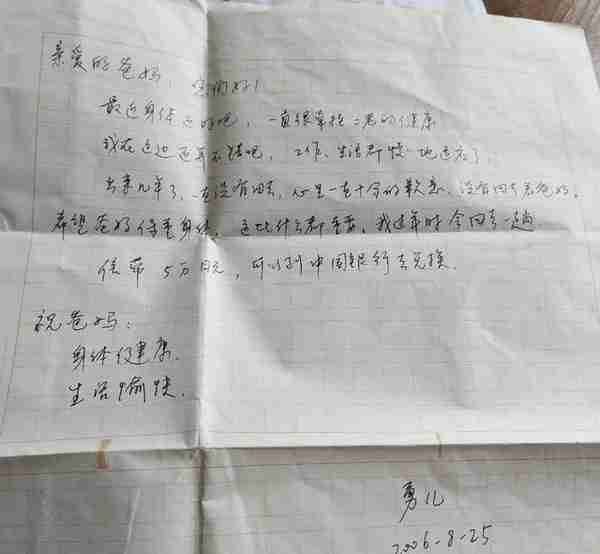 亲爱的爸妈：您们好！
最近身体还好吧，一直很牵挂二老的健康
我在这边还算不错吧，工作、生活都慢慢地适应了，
出来几年了，一直没有回去，心里一直十分的歉意，没有回去看爸妈。
希望爸妈保重身体，这比什么都重要，我过年时会回去一趟
信带 5万日元，可以到中国银行去兑换.
祝爸妈：
身体健康.
生活愉快.
勇儿
2006-8-25